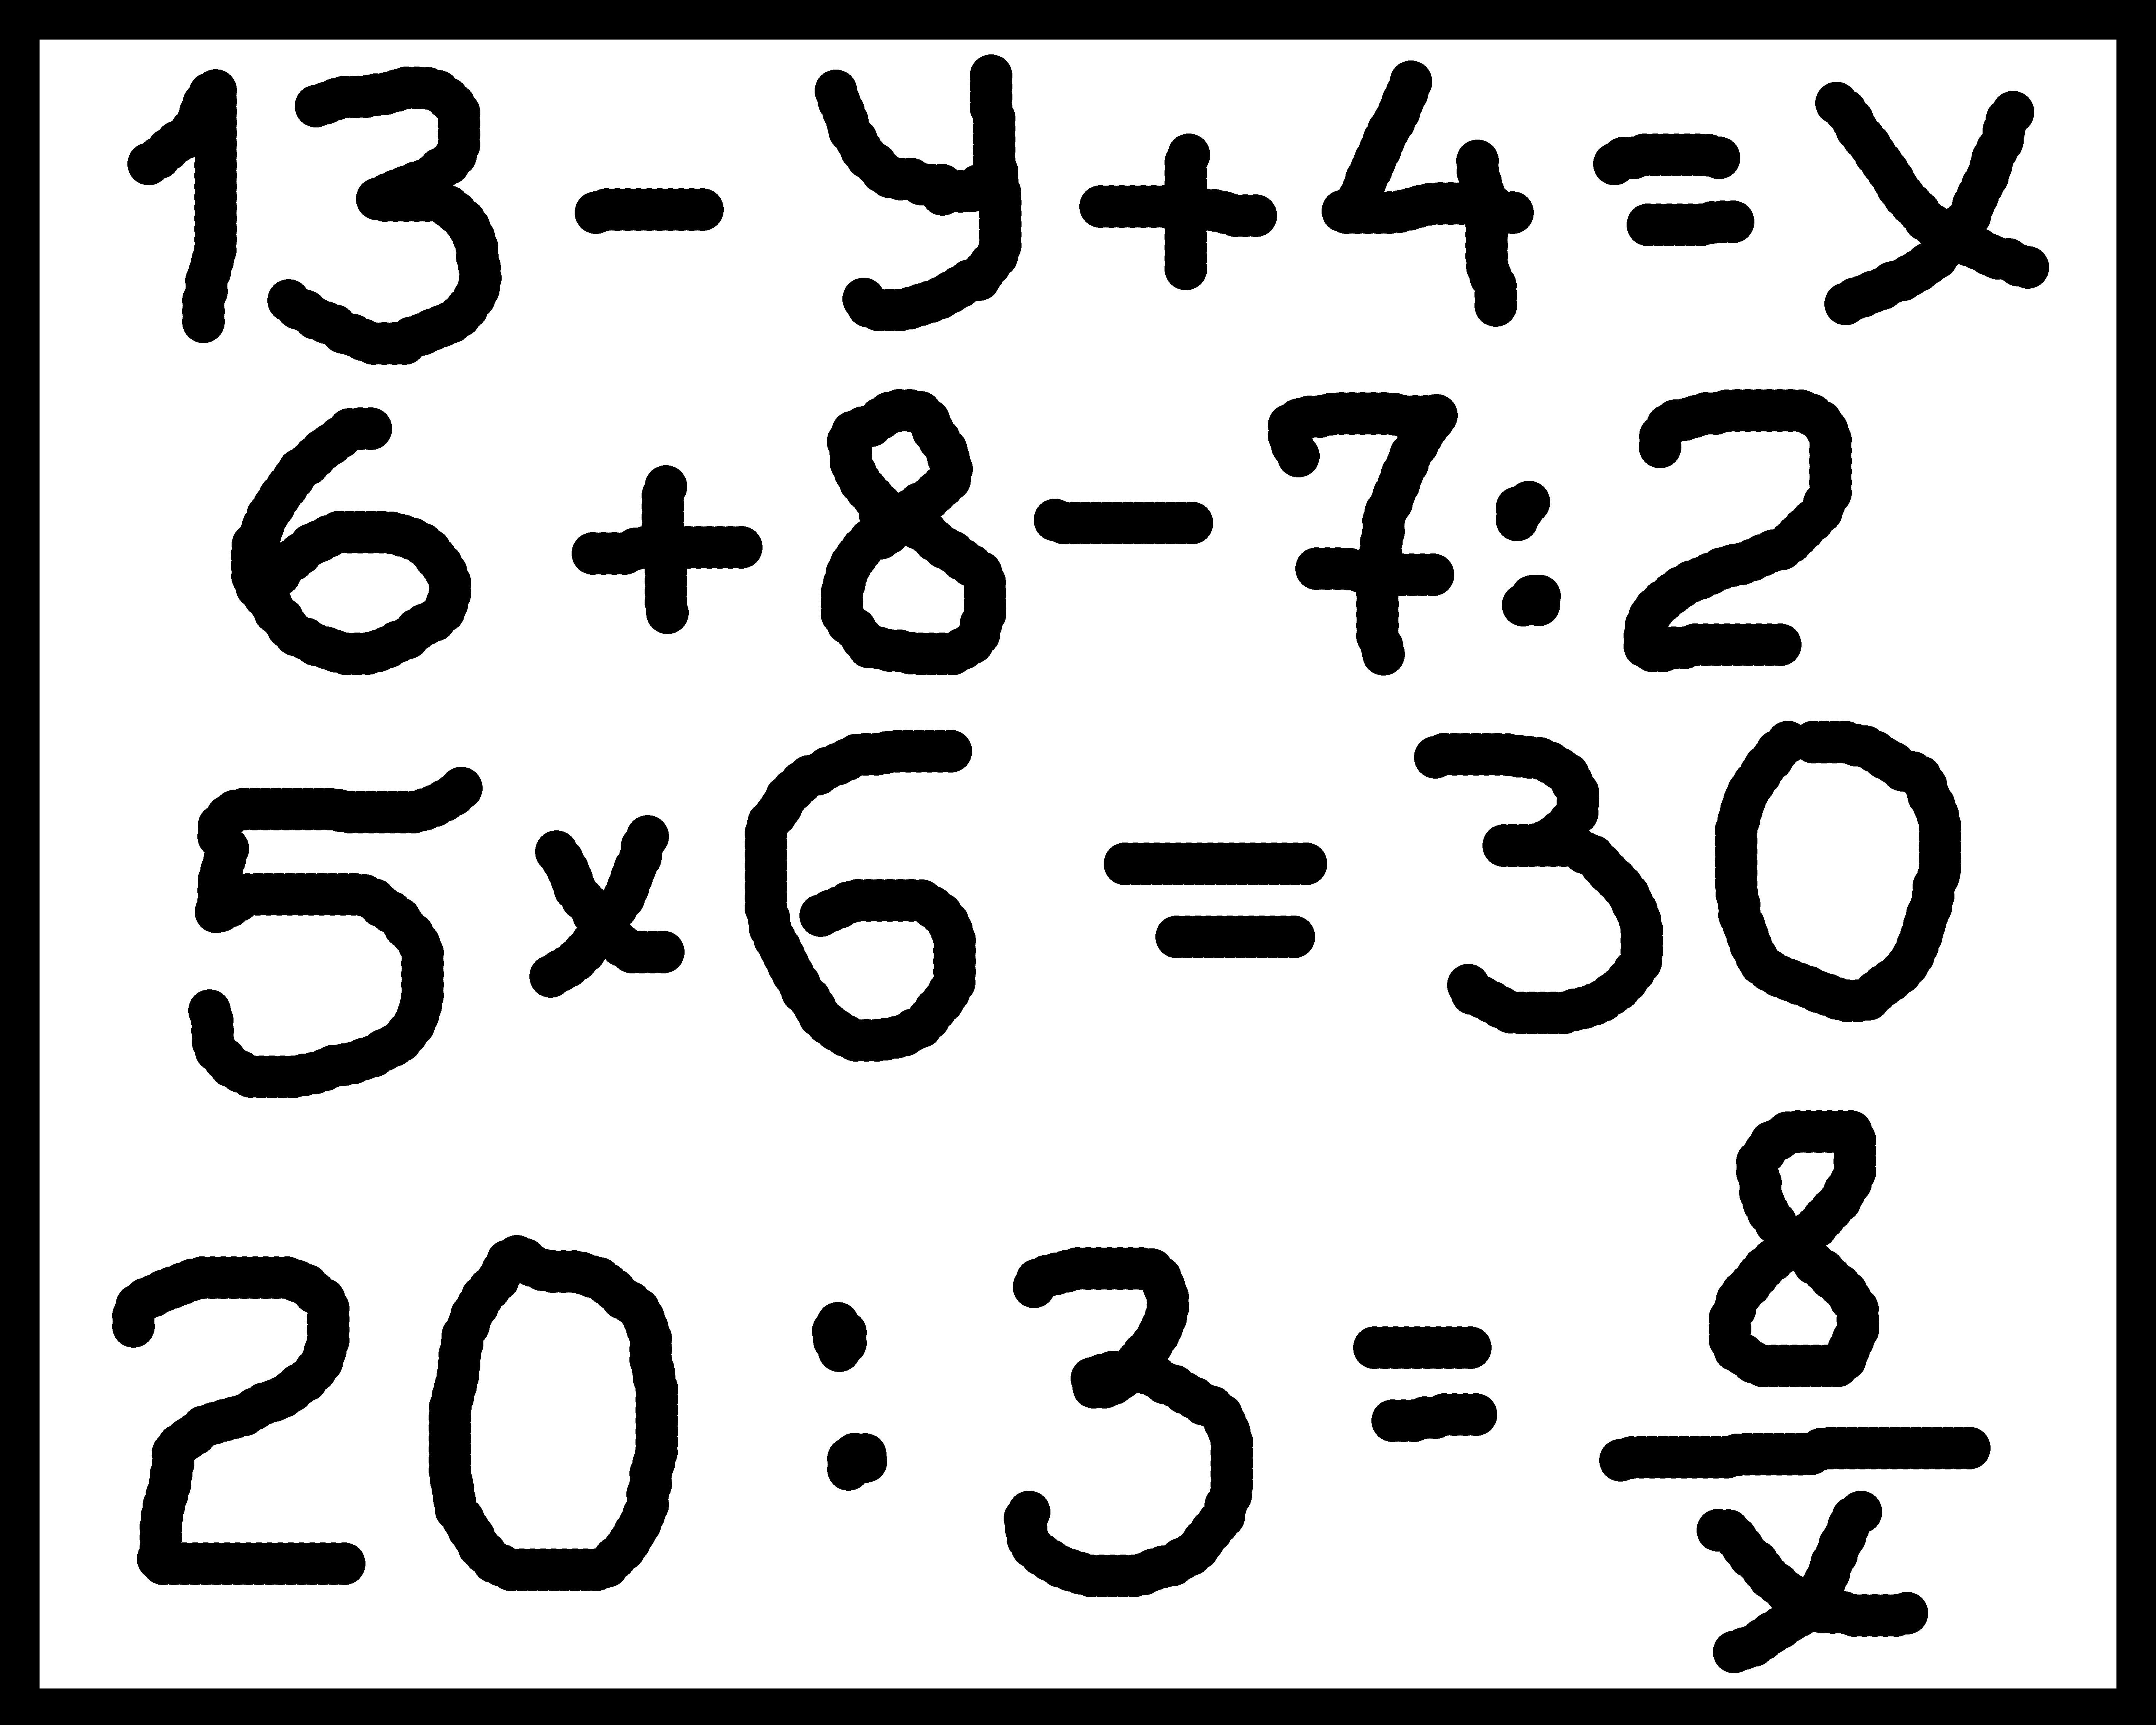 13 - y + 4 = x
6 + 8 - 7 : 2
5 x 6 = 30
20 : 3 = 8/x